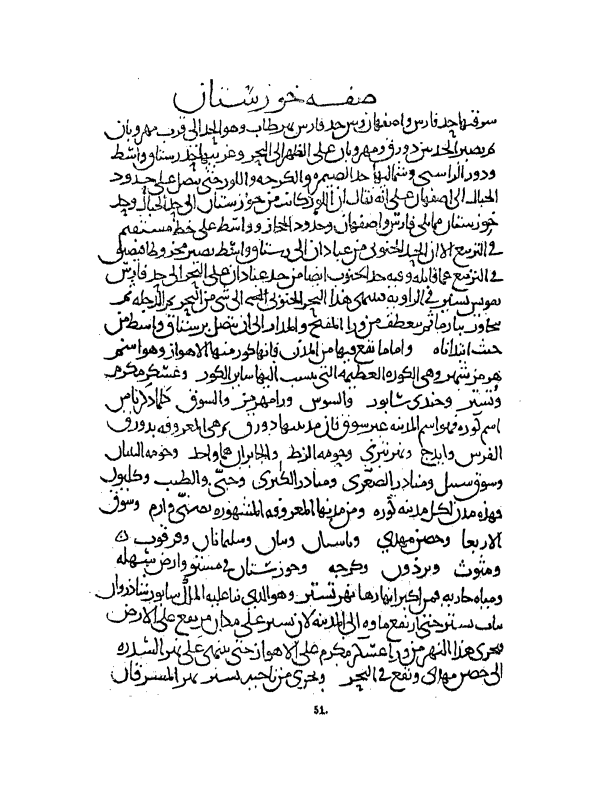 صفة خوزستان
شرقيها حد فارس واصفهان وبين حد فارس نهر طاب وهو الحد الى قرب مهروبان
ثم يصير الحد بين دورق ومهروبان على الظهر الى البحر وغربيها حد رستاق واسط
ودور الراسبي وشماليها حد الصيمره والكرجه واللور حتى يتصل على حدود
الجبال الى اصفهان على انه يقال ان اللور كانت من خوزستان الى حد الجبال وحد
خوزستان مما يلي فارس واصفهان وحدود الجبال وواسط على خط مستقيم
في التربيع الا ان الحد الجنوبى من عبادان الى رستاق واسط يصير مخروطا فيضيق
في التربيع عما قابله وفيه حد الجنوب ايضا من حد عبادان على البحر الى حد فارس
تقويس يسير في الزاويه فينتهى هذا الجنوبى الى شى من البحر ثم الدجله ثم
يجاوز بيان ثم ينعطف من ورا المفتح والمدار الى ان يتصل برستاق واسط من
حيث ابتداناه واما ما يقع فيها من المدن فانها كور منها الاهواز وهو اسم
هرمز شهر وهى الكوره العظيمه التى ينسب اليها ساير الكور وعسكر مكرم
وتستر وجندى شابور والسوس ورامهرمز والسوق كلما ذكرناه من
اسم كوره فهو اسم المدينه غير سوق فان مدينتها دورق ثم هى المعروفه بدورق
الفرس وايذج ونهر تيرى وحومه الزط والخابران هما واحد وحومه البنيان
وسوق سنبيل ومناذر الصغرى ومناذر الكبرى وجبّى والطيب وكليوان
فهذه مدن لكل مدينه كوره ومن مدنها المعروفه المشهوره بصنّى وازم وسوق
الاربعا وحصن مهدي وباسيان وبيان وسليمانان وقرقوب
ومتوث وبرذون وكرجه وخوزستان في مستو وارض سهله
ومياه جاريه فمن اكبر انهارها نهر تستر وهو الذى بنا عليه الملك سابور شاذروان
بباب تستر حتى ارتفع ماوه الى المدينه لان تستر على مكان مرتفع على الارض
فيجرى هذا النهر من ورا عسكر مكرم على الاهواز حتى ينتهى على نهر السدره
الى حصن مهدى ويقع في البحر ويجرى من ناحيه تستر نهر المسرقان
51.